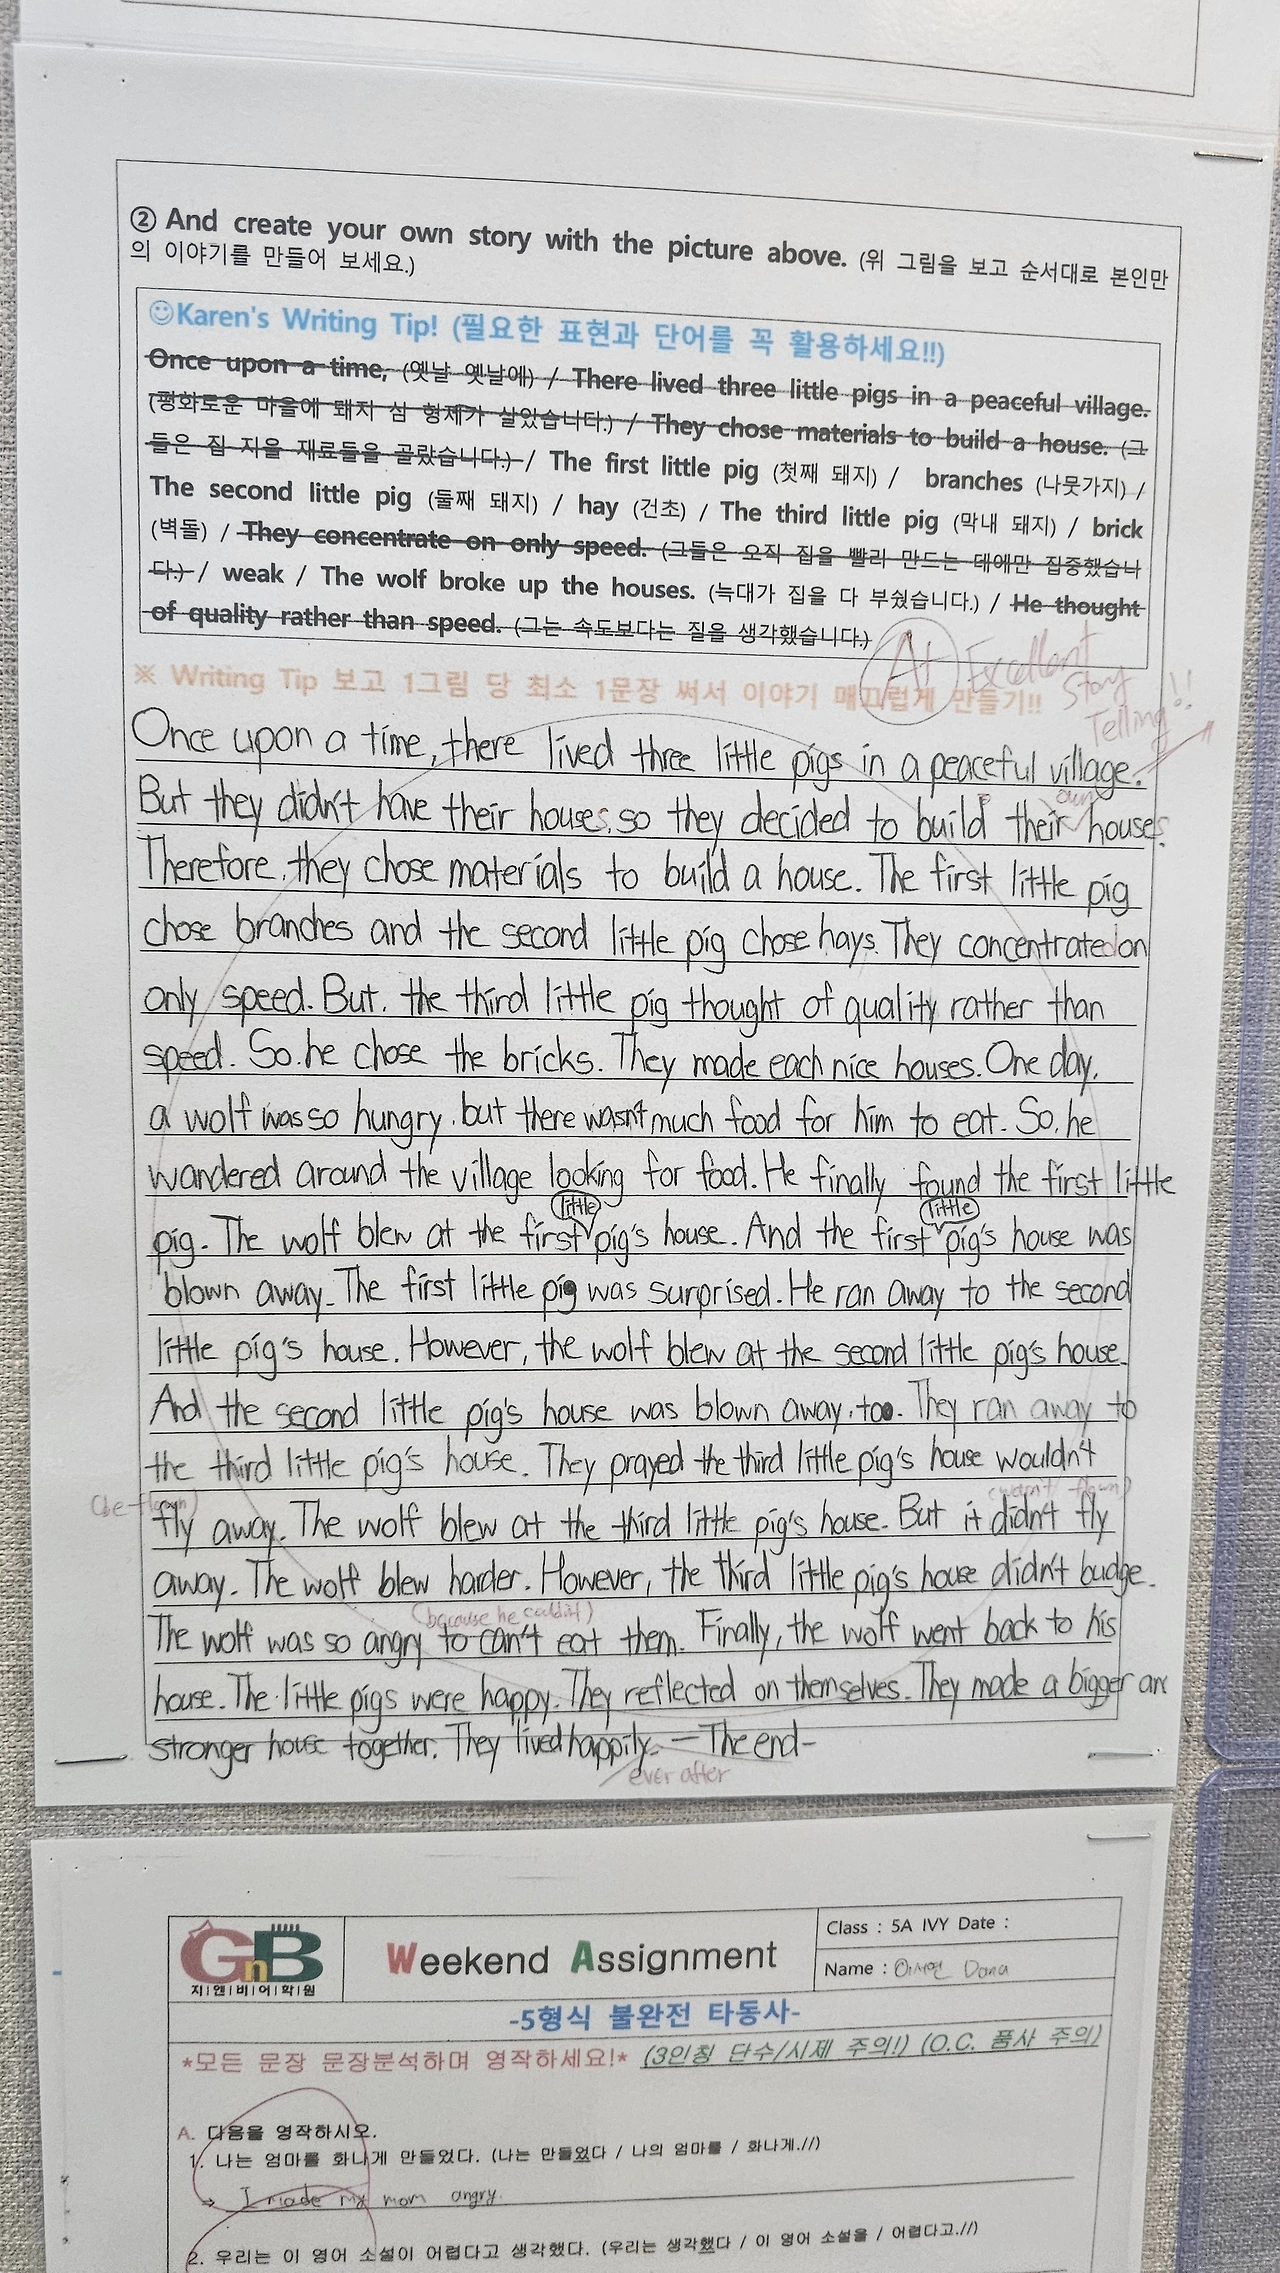 ② And create your own story with the picture above. (위 그림을 보고 순서대로 본인만
의 이야기를 만들어 보세요.)
☺Karen's Writing Tip! (필요한 표현과 단어를 꼭 활용하세요!!)
Once upon a time, (옛날 옛날에) / There lived three little pigs in a peaceful village.
(평화로운 마을에 돼지 삼 형제가 살았습니다.) / They chose materials to build a house. (그
들은 집 지을 재료들을 골랐습니다.) / The first little pig (첫째 돼지) / branches (나뭇가지) /
The second little pig (둘째 돼지) / hay (건초) / The third little pig (막내 돼지) / brick
(벽돌) / They concentrate on only speed. (그들은 오직 집을 빨리 만드는 데에만 집중했습니
다.) / weak / The wolf broke up the houses. (늑대가 집을 다 부쉈습니다.) / He thought
of quality rather than speed. (그는 속도보다는 질을 생각했습니다.)
A+ Excellent
Story
Telling!!
※ Writing Tip 보고 1그림 당 최소 1문장 써서 이야기 매끄럽게 만들기!!
Once upon a time, there lived three little pigs in a peaceful village.
own
But they didn't have their houses, so they decided to build their houses.
Therefore, they chose materials to build a house. The first little pig
chose branches and the second little pig chose hays. They concentrated on
only speed. But, the third little pig thought of quality rather than
speed. So, he chose the bricks. They made each nice houses. One day,
a wolf was so hungry, but there wasn't much food for him to eat. So, he
wandered around the village looking for food. He finally found the first little
little little
pig. The wolf blew at the first pig's house. And the first pig's house was
blown away. The first little pig was surprised. He ran away to the second
little pig's house. However, the wolf blew at the second little pig's house.
And the second little pig's house was blown away, too. They ran away to
the third little pig's house. They prayed the third little pig's house wouldn't
(be flown) (wasn't flown)
fly away. The wolf blew at the third little pig's house. But it didn't fly
away. The wolf blew harder. However, the third little pig's house didn't budge.
(because he couldn't)
The wolf was so angry to can't eat them. Finally, the wolf went back to his
house. The little pigs were happy. They reflected on themselves. They made a bigger an
stronger house together. They lived happily. -The end-
ever after
GnB
지|앤|비|어|학|원
Weekend Assignment
Class : 5A IVY Date :
Name : 이서연 Dana
-5형식 불완전 타동사-
*모든 문장 문장분석하며 영작하세요!* (3인칭 단수/시제 주의!) (O.C. 품사 주의)
A. 다음을 영작하시오.
1. 나는 엄마를 화나게 만들었다. (나는 만들었다 / 나의 엄마를 / 화나게.//)
→ I made my mom angry.
2. 우리는 이 영어 소설이 어렵다고 생각했다. (우리는 생각했다 / 이 영어 소설을 / 어렵다고.//)